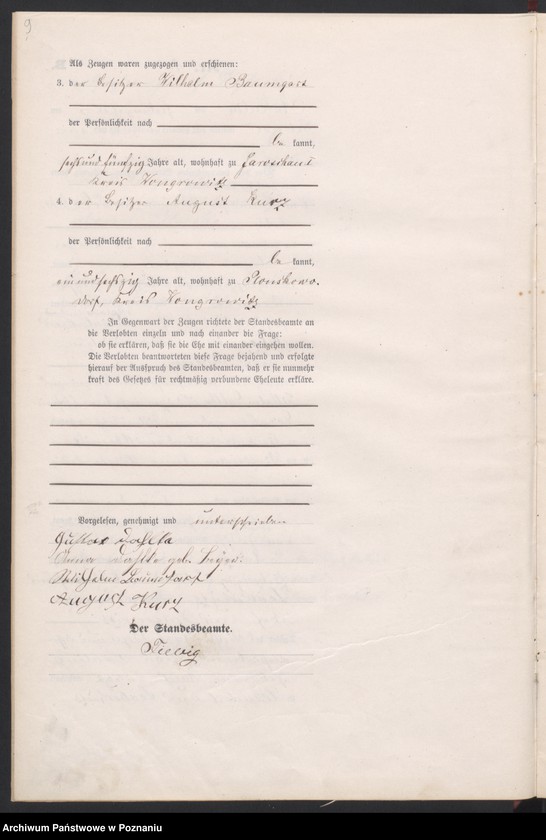 9
Als Zeugen waren zugezogen und erschienen:
3. der Besitzer Wilhelm Baumgart
der Persönlichkeit nach
be kannt,
sechsundfünfzig Jahre alt, wohnhaft zu
Kreis Wongrowitz
4. der Besitzer August Kurz
der Persönlichkeit nach
be kannt,
einundsechszig Jahre alt, wohnhaft zu
dorf, Kreis Wongrowitz
In Gegenwart der Zeugen richtete der Standesbeamte an
die Verlobten einzeln und nach einander die Frage:
ob sie erklären, daß sie die Ehe mit einander eingehen wollen.
Die Verlobten beantworteten diese Frage bejahend und erfolgte
hierauf der Ausspruch des Standesbeamten, daß er sie nunmehr
kraft des Gesetzes für rechtmäßig verbundene Eheleute erkläre.
Vorgelesen, genehmigt und unterschrieben
Gustav
Anna geb.
Wilhelm Baumgart
August Kurz
Der Standesbeamte.
Archiwum Państwowe w Poznaniu